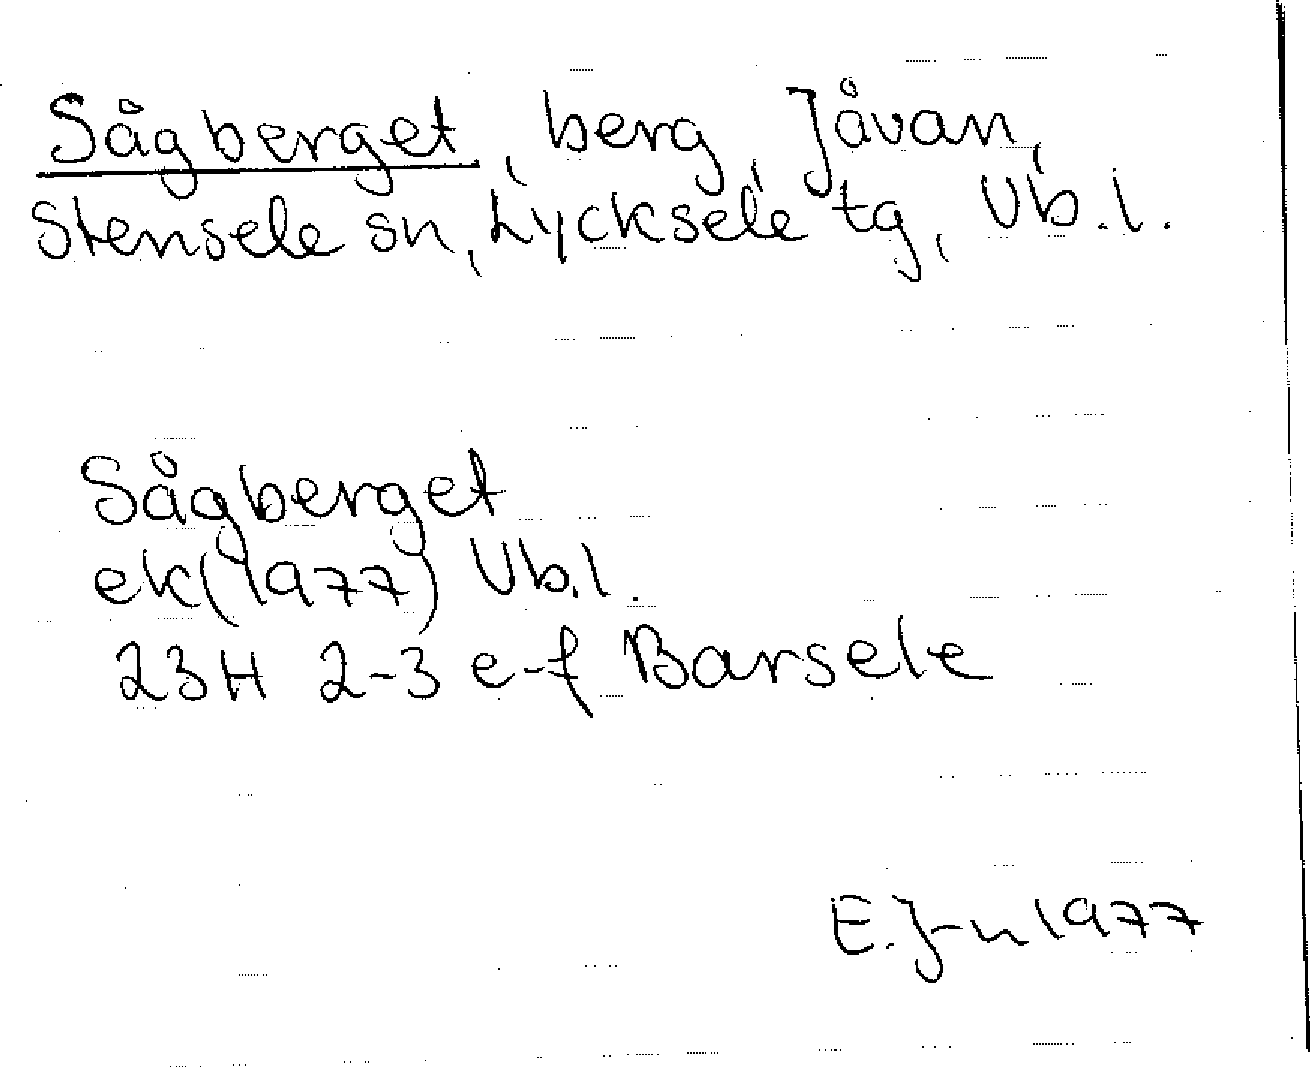 Sågberget, berg, Jåvan,
Stensele sn, Lycksele tg, Vb.l.
Sågberget
ek(1977) Vb.l.
23H 2-3 e-f Barsele
E.J-n 1977